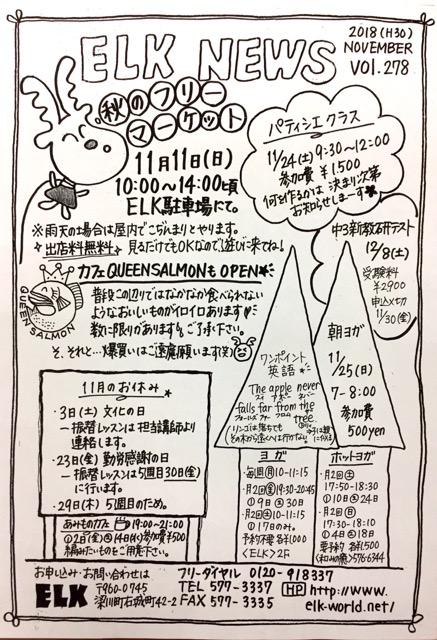 ELK NEWS
2018 (H30)
NOVEMBER
VOL.278
秋のフリー
マーケット
11月11日(日)
10:00〜14:00頃
ELK駐車場にて。
※雨天の場合は屋内でこぢんまりとやります。
出店料無料 見るだけでもOKなので遊びに来てね!
カフェQUEENSALMONも OPEN
QUEEN SALMON
普段この辺りではなかなか食べられない
ようなおいしいものがイロイロあります
数に限りがあります。ご了承下さい。
そ、それと…爆買いはご遠慮願います(笑)
パティシエ クラス
11/24(土) 9:30〜12:00
参加費 ¥1,500
何を作るかは 決まり次第
お知らせしまーす
中3新教研テスト
12/8(土)
受験料
¥2900
申込〆切
11/30(金)
ワンポイント
英語
The apple never
falls far from the
tree
リンゴは落ちても
その木から遠くへは行かない
朝ヨガ
11/25(日)
7-8:00
参加費
500yen
11月のお休み
・3日(土) 文化の日
ー振替レッスンは 担当講師より
連絡します。
・23日(金) 勤労感謝の日
ー振替レッスンは 5週目30日(金)
に行います。
・29日(木) 5週目のため。
あみものカフェ 19:00〜21:00
①2日(金) ②14日(水) 参加費¥500
編みたいものをご用意下さい。
ヨガ
・毎週(月) 10-11:15
・月2回(金) 19:30-20:45
①9日 ②30日
・月2回(土) 10-11:15
①17日のみ。
予約不要 各¥1000
<ELK> 2F
ホットヨガ
・月2回(土)
17:50-18:30
①10日 ②24日
・月2回(日)
17:30-18:10
①4日 ②18日
要予約 各¥1,500
576-6344
お申し込み・お問い合わせは
ELK
〒960-0745
梁川町右城町42-2
フリーダイヤル 0120-918337
TEL 577-3337
FAX 577-3335
HP http://www.
elk-world.net/